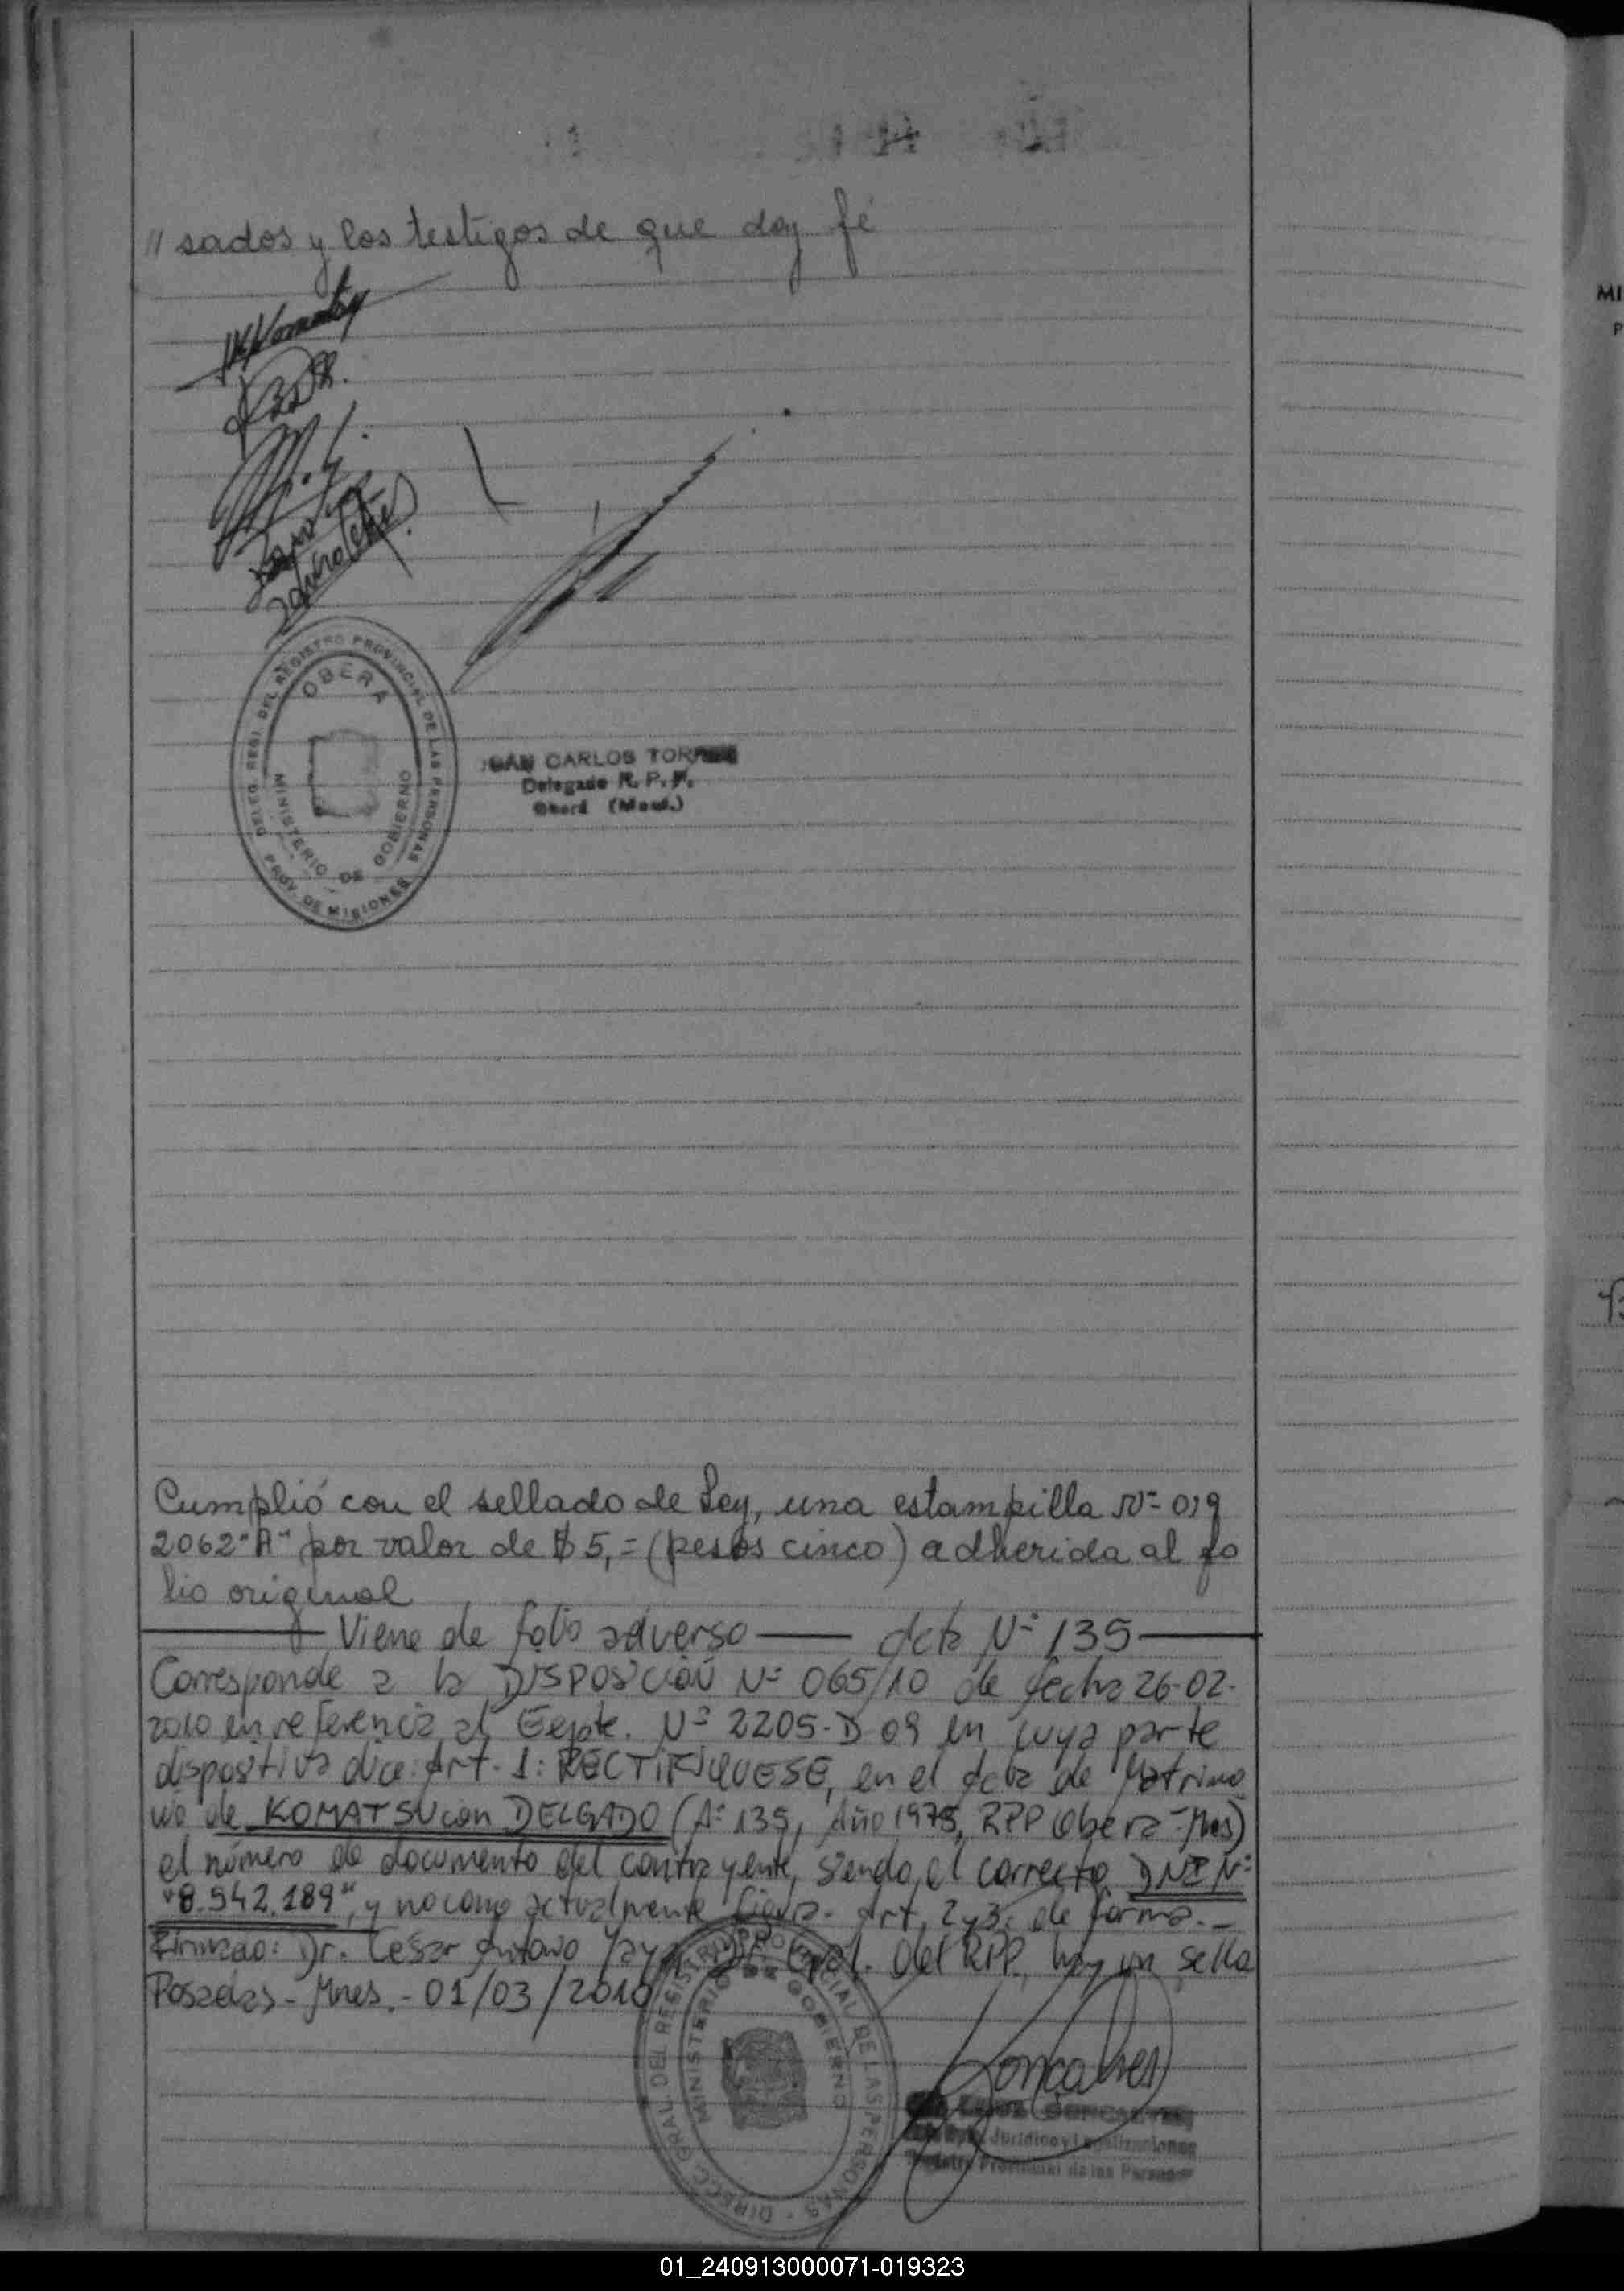 // sados y los testigos de que doy fé
DELEG. REGI. DEL REGISTRO PROVINCIAL DE LAS PERSONAS
OBERA
MINISTERIO DE GOBIERNO
PROV. DE MISIONES
JUAN CARLOS TORRES
Delegado R. P. P.
Oberá (Mnes.)
Cumplió con el sellado de Ley, una estampilla Nº 019
2062"A" por valor de $ 5,= (pesos cinco) adherida al fo
lio original
Viene de folio adverso — Acta Nº 135
Corresponde a la DISPOSICIÓN Nº 065/10 de fecha 26-02-
2010 en referencia al Expte. Nº 2205-D-09 en cuya parte
dispositiva dice: Art. 1: RECTIFIQUESE, en el acta de Matrimo
nio de KOMATSU con DELGADO (Aº 135, Año 1975, RPP Obera-Mnes)
el número de documento del contrayente, siendo el correcto DNI Nº
"8.542.189", y no como actualmente figura. Art, 2 y 3: de forma.-
Firmado: Dr. Cesar Antonio Dir. Gral. del RPP. hay un sello
Posadas - Mnes.- 01/03/2010
DIRECC. GRAL. DEL REGISTRO PROVINCIAL DE LAS PERSONAS
MINISTERIO DE GOBIERNO
Goncalves
GONCALVES
Jurídico y
Registro Provincial de las Personas
MI
P
01_240913000071-019323